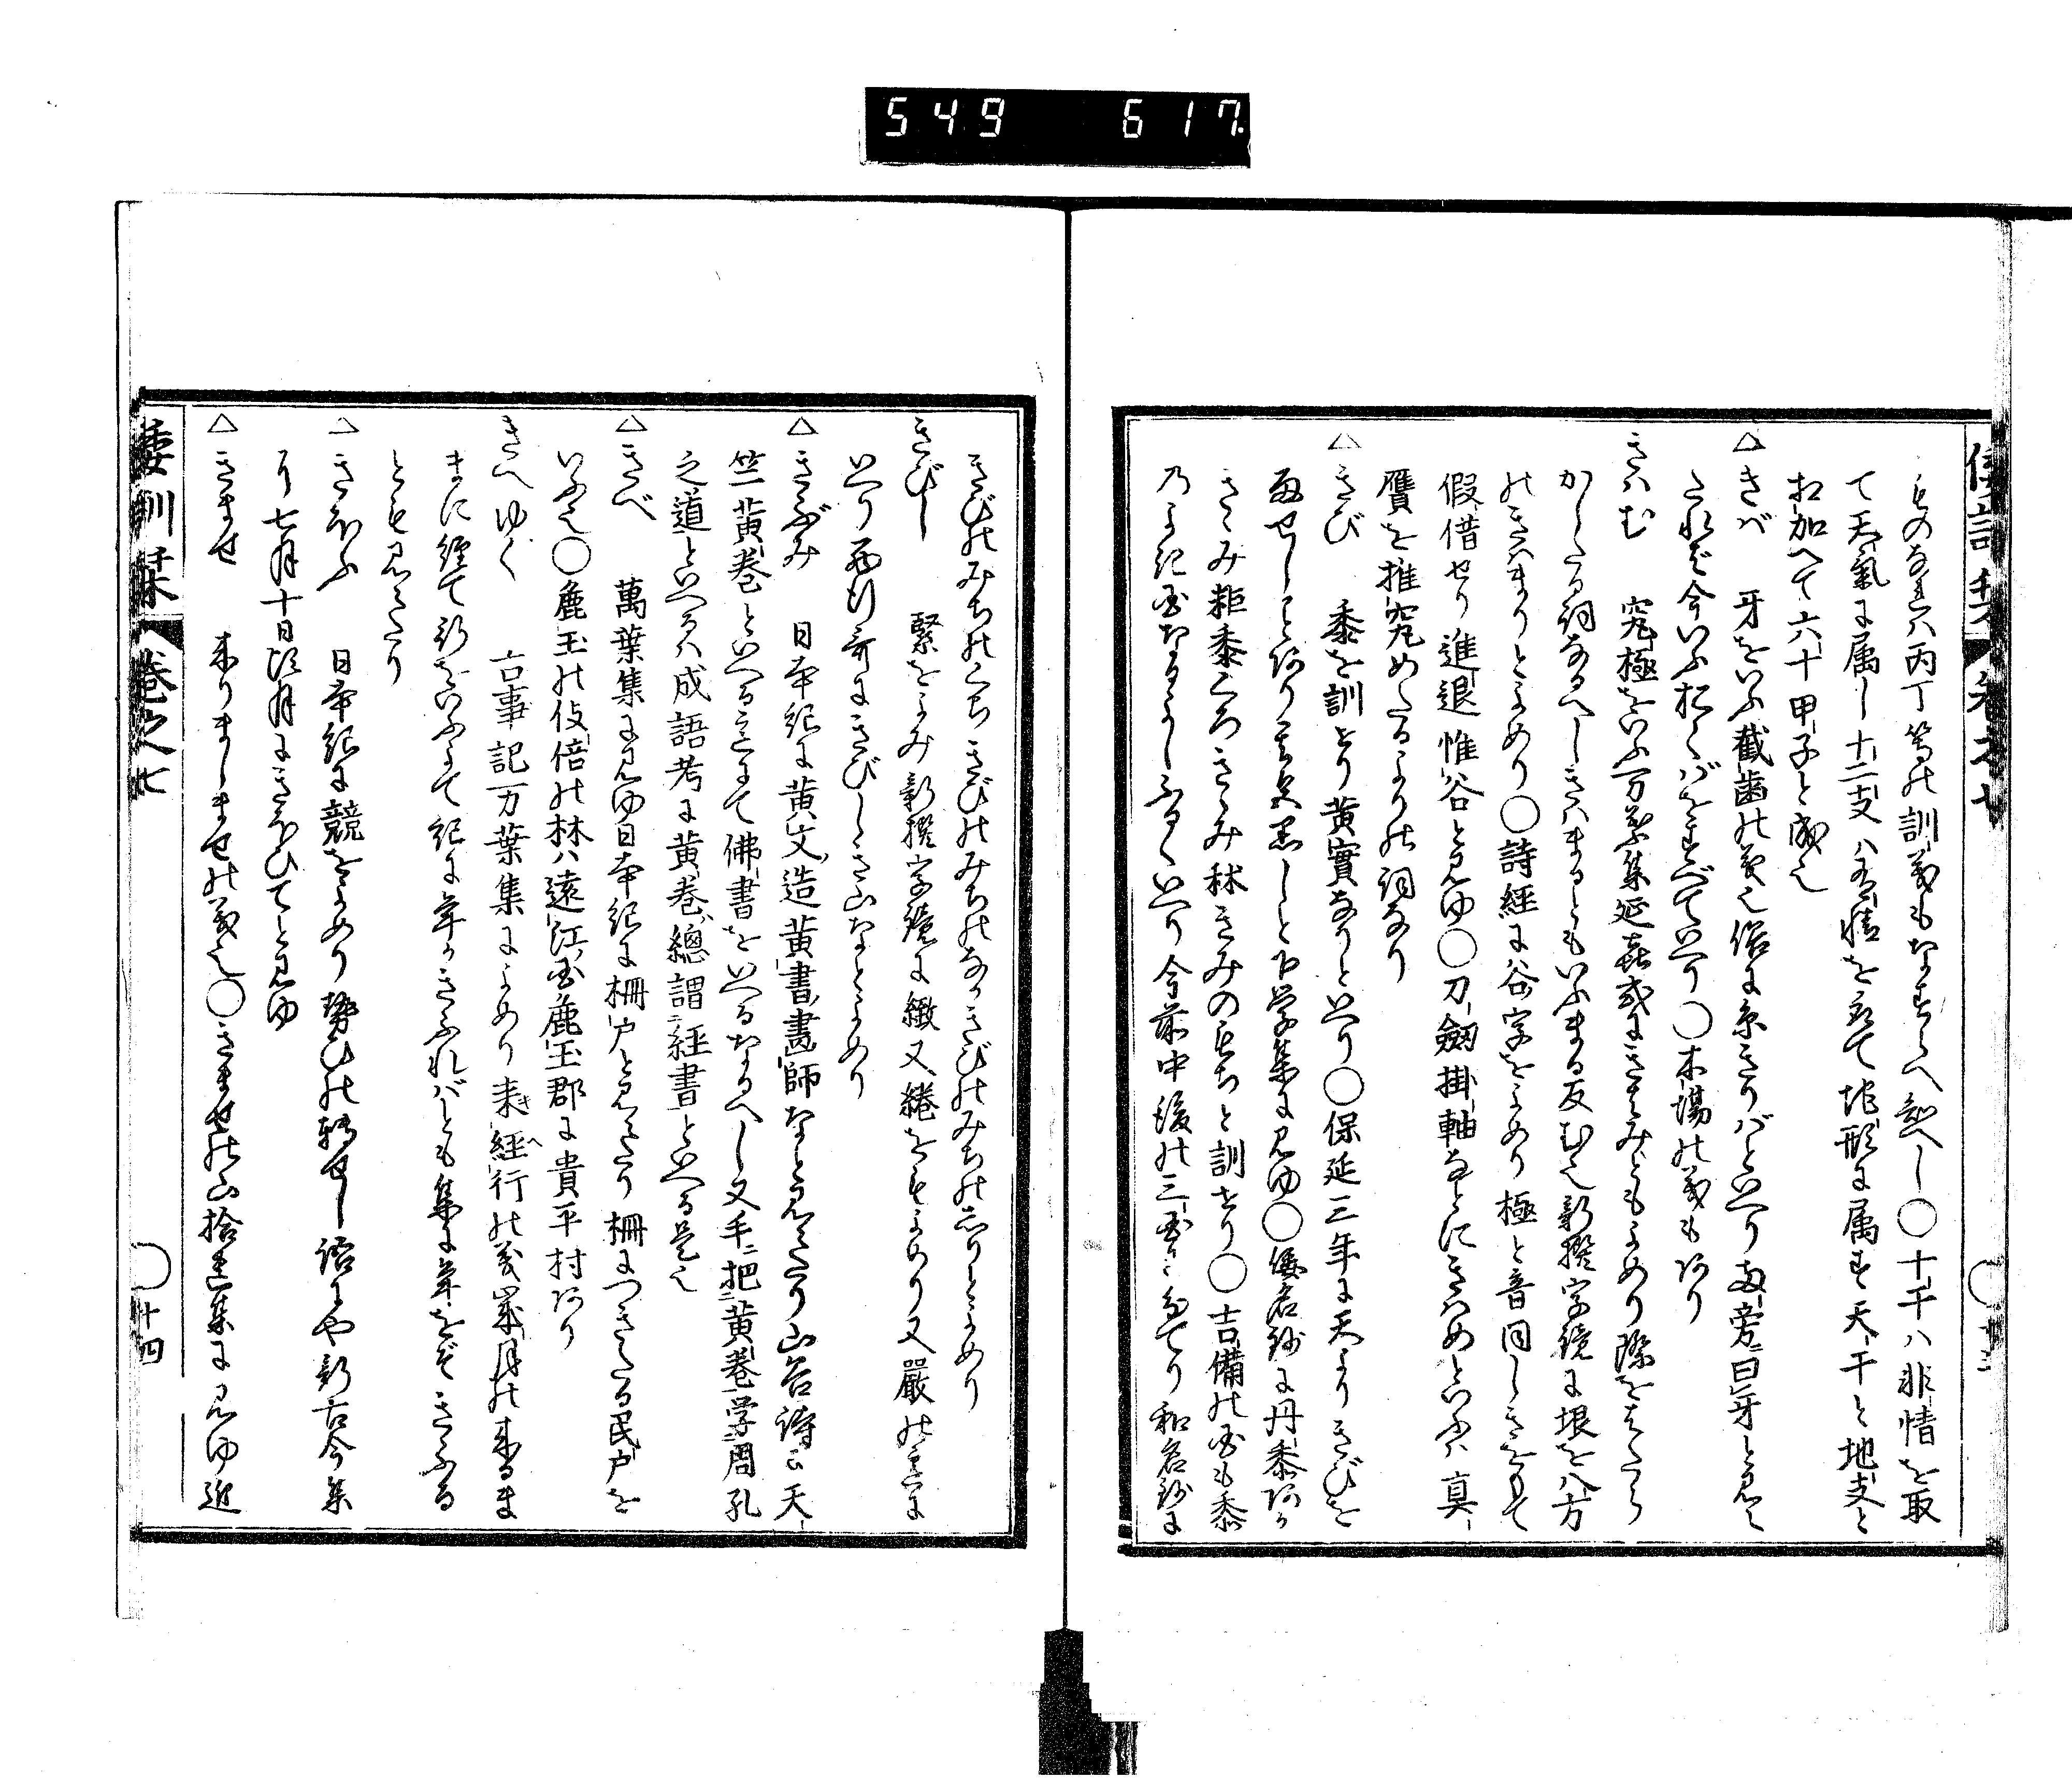 549 617
との もまれハ丙丁等の訓義もなすらへ知へし〇十干ハ非情を取
て天氣に属し十二支ハ有情を取て地形に属す天干と地支と
相加へて六十甲子と成也
△きば 牙をいふ截歯の義也俗に糸きりばといへり両旁曰牙と見え
たれど今いふ おくばをすべていへり〇木場の義もあり
きはむ 究極をいふ万葉集延喜式にきはみともよめり際をはたら
かしたる詞なるへしきはまるともいふまる反む也新撰字鏡に垠を八方
のきはまりとよめり〇詩經に谷字をよめり極と音同しきをもて
假借せり進退惟谷と見ゆ〇刀劔掛軸なとにきはめといふハ真
贋を推究めたるよりの詞なり
△きび 黍を訓せり黄實なりといへり〇保延三年に天よりきびを
雨せしことあり其色黒しと下学集に見ゆ〇倭名鈔に丹黍あか
きゝみ秬黍くろきゝみ秫きみのもちと訓せり〇吉備の国も黍
乃よき国なるよしふるくいへり今前中後の三国に分てり和名鈔に
倭訓栞 巻之七 〇十三
きびのみちのくちきびのみちのなかきびのみちのしりとよめり
きびし 緊をよみ新撰字鏡に緻又綣をもよめり又嚴の意に
いへり西行哥にきびしき山なとよめり
△きぶみ 日本紀に黄文造黄書畫師なと見えたり山谷詩に天
竺黄巻といへる意にて佛書をいへるなるへし又手把黄巻学周孔
之道といへるハ成語考に黄巻總謂經書といへる是也
△きべ 萬葉集に見ゆ日本紀に柵戸と見えたり柵につきたる民戸を
いふ也〇麁玉の伎倍の林ハ遠江国麁玉郡に貴平村あり
きへゆく 古事記万葉集によめり来經行の義歳月の来るま
まに經て新をいふよて記に年かきふれバとも集に年をぞきふる
とも見えたり
△きほふ 日本紀に競をよめり勢ひの轉せし語にや新古今集
に七月十日頃月にきほひてと見ゆ
△きませ 来りましませの義也〇きませの山拾遺集に見ゆ近
倭訓栞 巻之七 〇十四